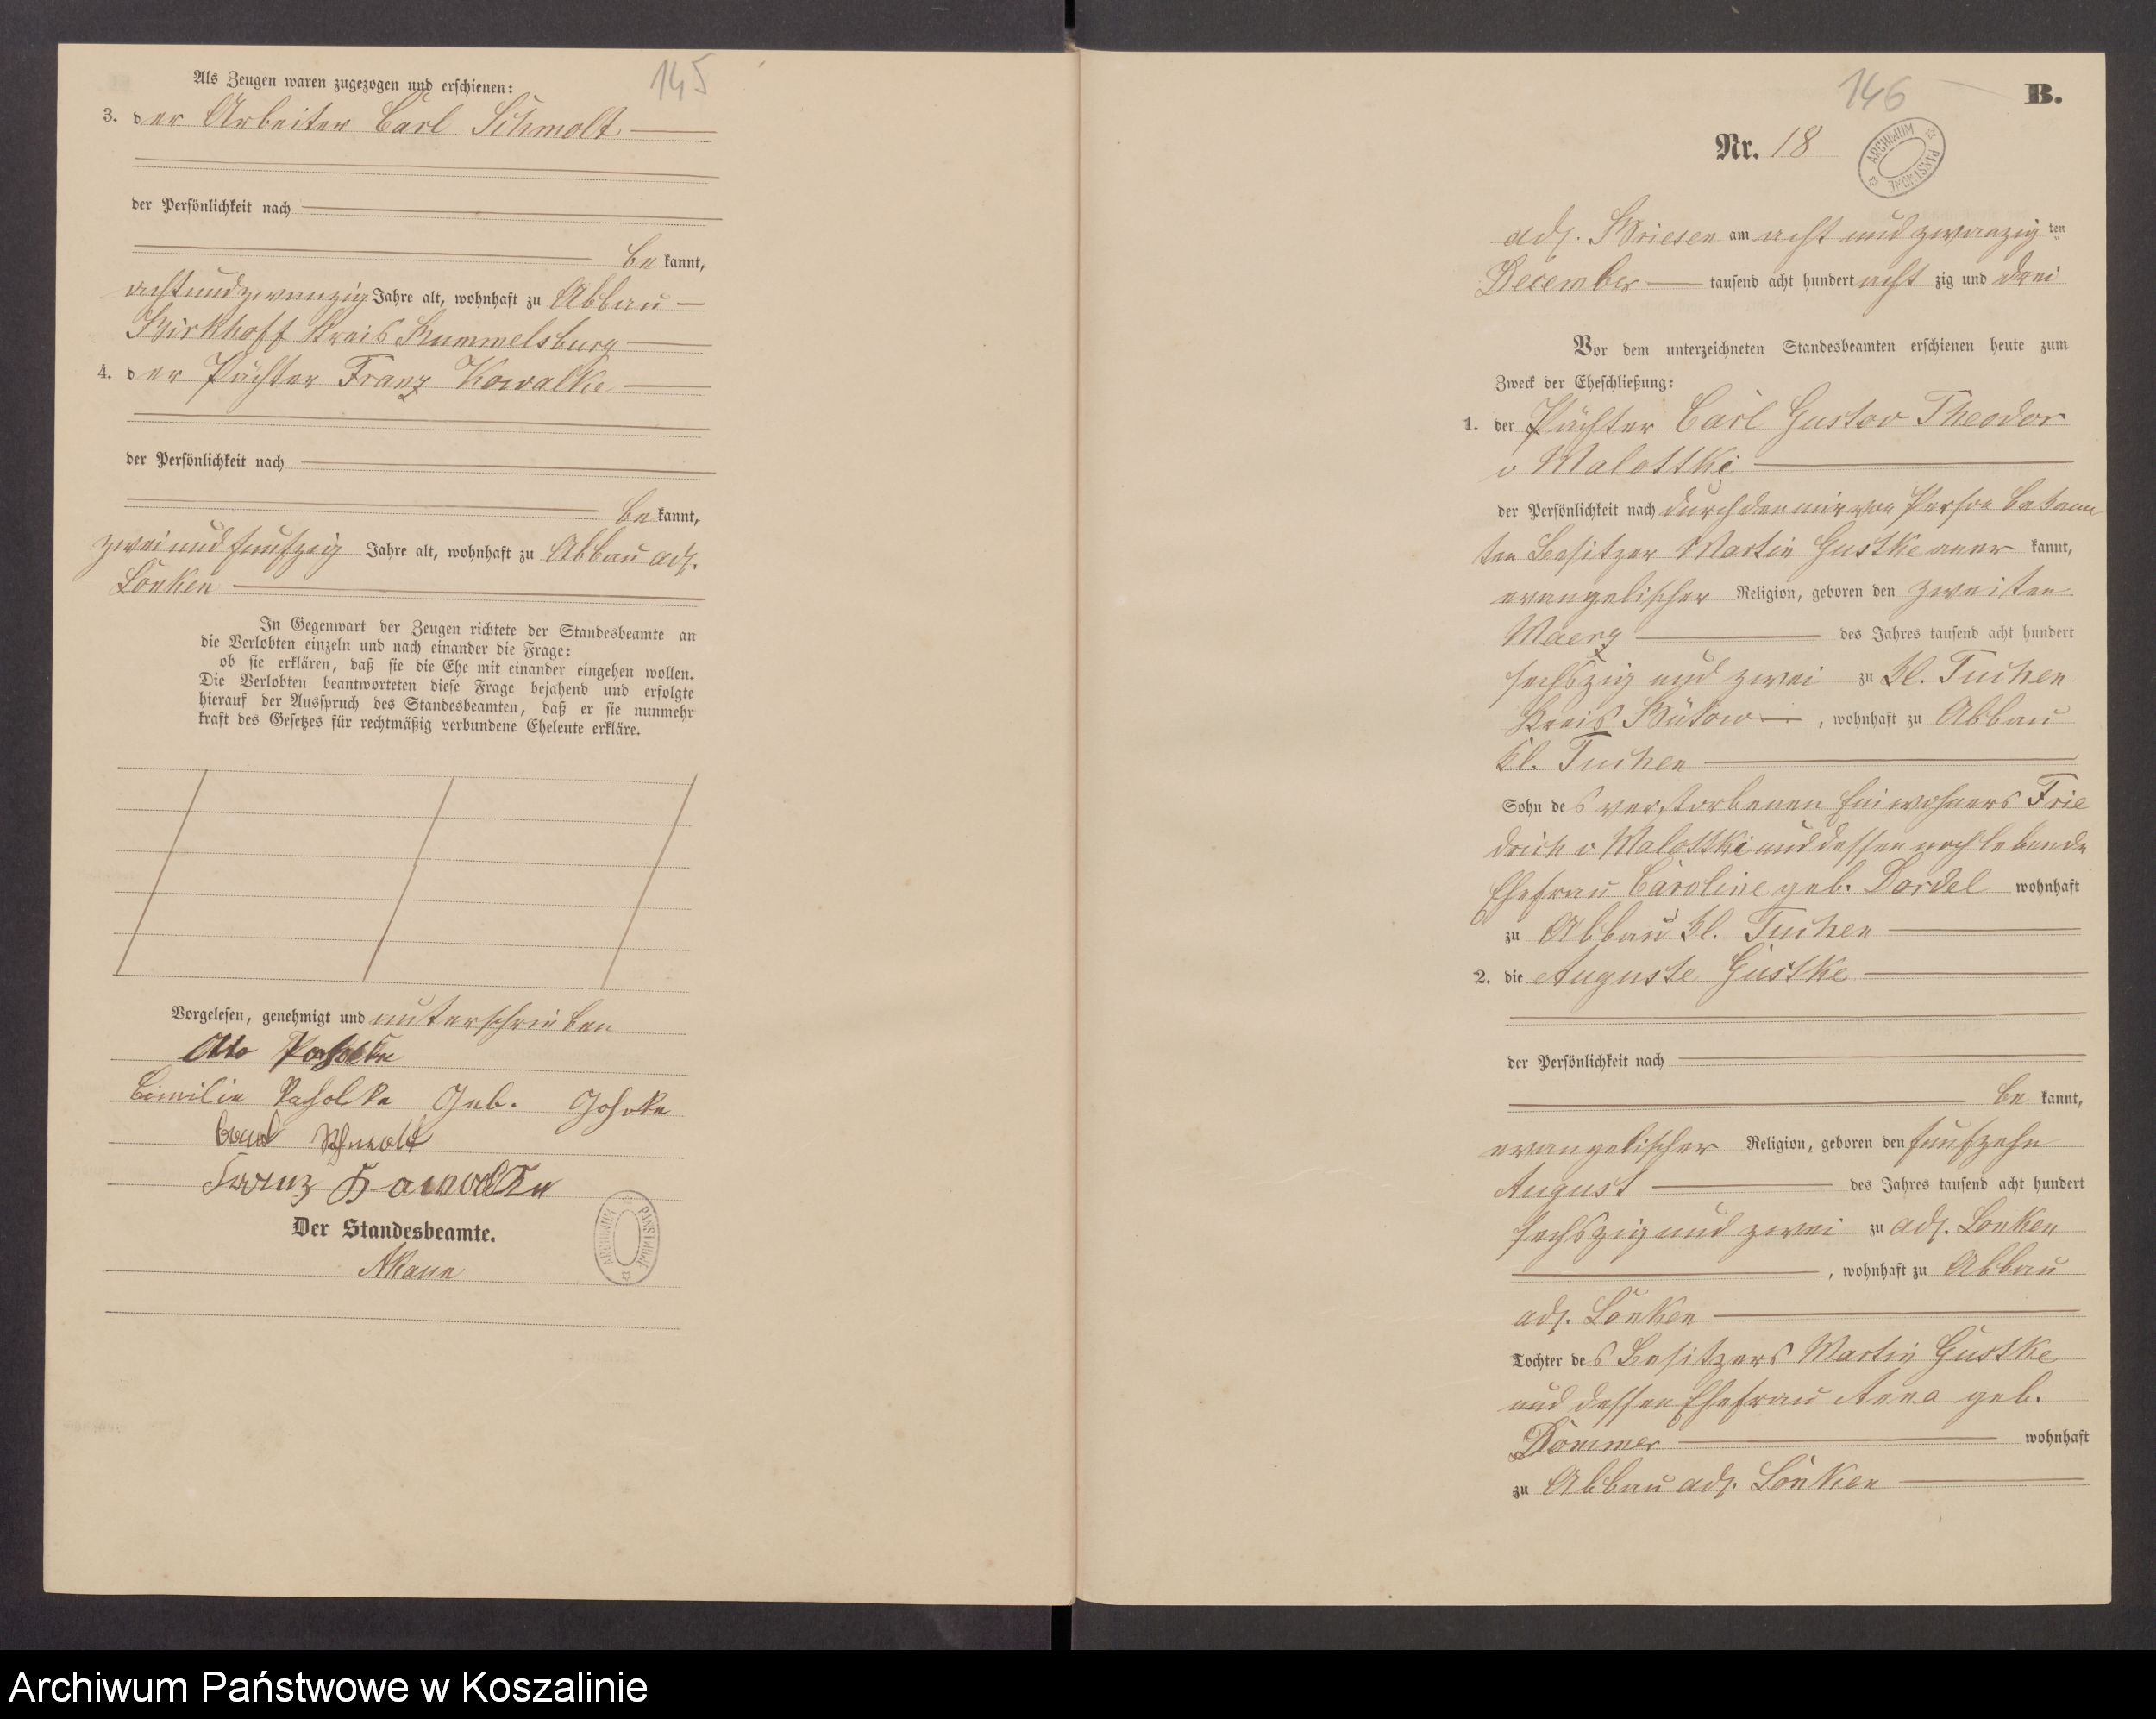 145
Als Zeugen waren zugezogen und erschienen:
3. der Arbeiter Carl Schmolt
der Persönlichkeit nach
be kannt,
achtundzwanzig Jahre alt, wohnhaft zu Abbau
Birkhoff Kreis Rummelsburg
4. der Pächter Franz Kowalke
der Persönlichkeit nach
be kannt,
zwei und funfzig Jahre alt, wohnhaft zu Abbau adl.
Lonken
In Gegenwart der Zeugen richtete der Standesbeamte an
die Verlobten einzeln und nach einander die Frage:
ob sie erklären, daß sie die Ehe mit einander eingehen wollen.
Die Verlobten beantworteten diese Frage bejahend und erfolgte
hierauf der Ausspruch des Standesbeamten, daß er sie nunmehr
kraft des Gesetzes für rechtmäßig verbundene Eheleute erkläre.
Vorgelesen, genehmigt und unterschrieben
Otto
Geb.
Schmolt
Franz
Der Standesbeamte.
ARCHIWUM PAŃSTWOWE
146
B.
Nr. 18
ARCHIWUM PAŃSTWOWE
adl. Briesen am acht und zwanzig ten
December tausend acht hundert acht zig und drei
Vor dem unterzeichneten Standesbeamten erschienen heute zum
Zweck der Eheschließung:
1. der Pächter Carl Gustav Theodor
v Malottki
der Persönlichkeit nach durch den mir von Person bekann
ten Besitzer Martin Gustke aner kannt,
evangelischer Religion, geboren den zweiten
Maerz des Jahres tausend acht hundert
sechszig und zwei zu Kl. Tuchen
Kreis Bütow , wohnhaft zu Abbau
Kl. Tuchen
Sohn des verstorbenen Einwohners Frie
drich v Malottki und dessen noch lebende
Ehefrau Caroline geb. Dordel wohnhaft
zu Abbau Kl. Tuchen
2. die Auguste Gustke
der Persönlichkeit nach
be kannt,
evangelischer Religion, geboren den funfzehn
August des Jahres tausend acht hundert
sechszig und zwei zu adl. Lonken
, wohnhaft zu Abbau
adl. Lonken
Tochter des Besitzers Martin Gustke
und dessen Ehefrau Anna geb.
Dommer wohnhaft
zu Abbau adl. Lonken
Archiwum Państwowe w Koszalinie